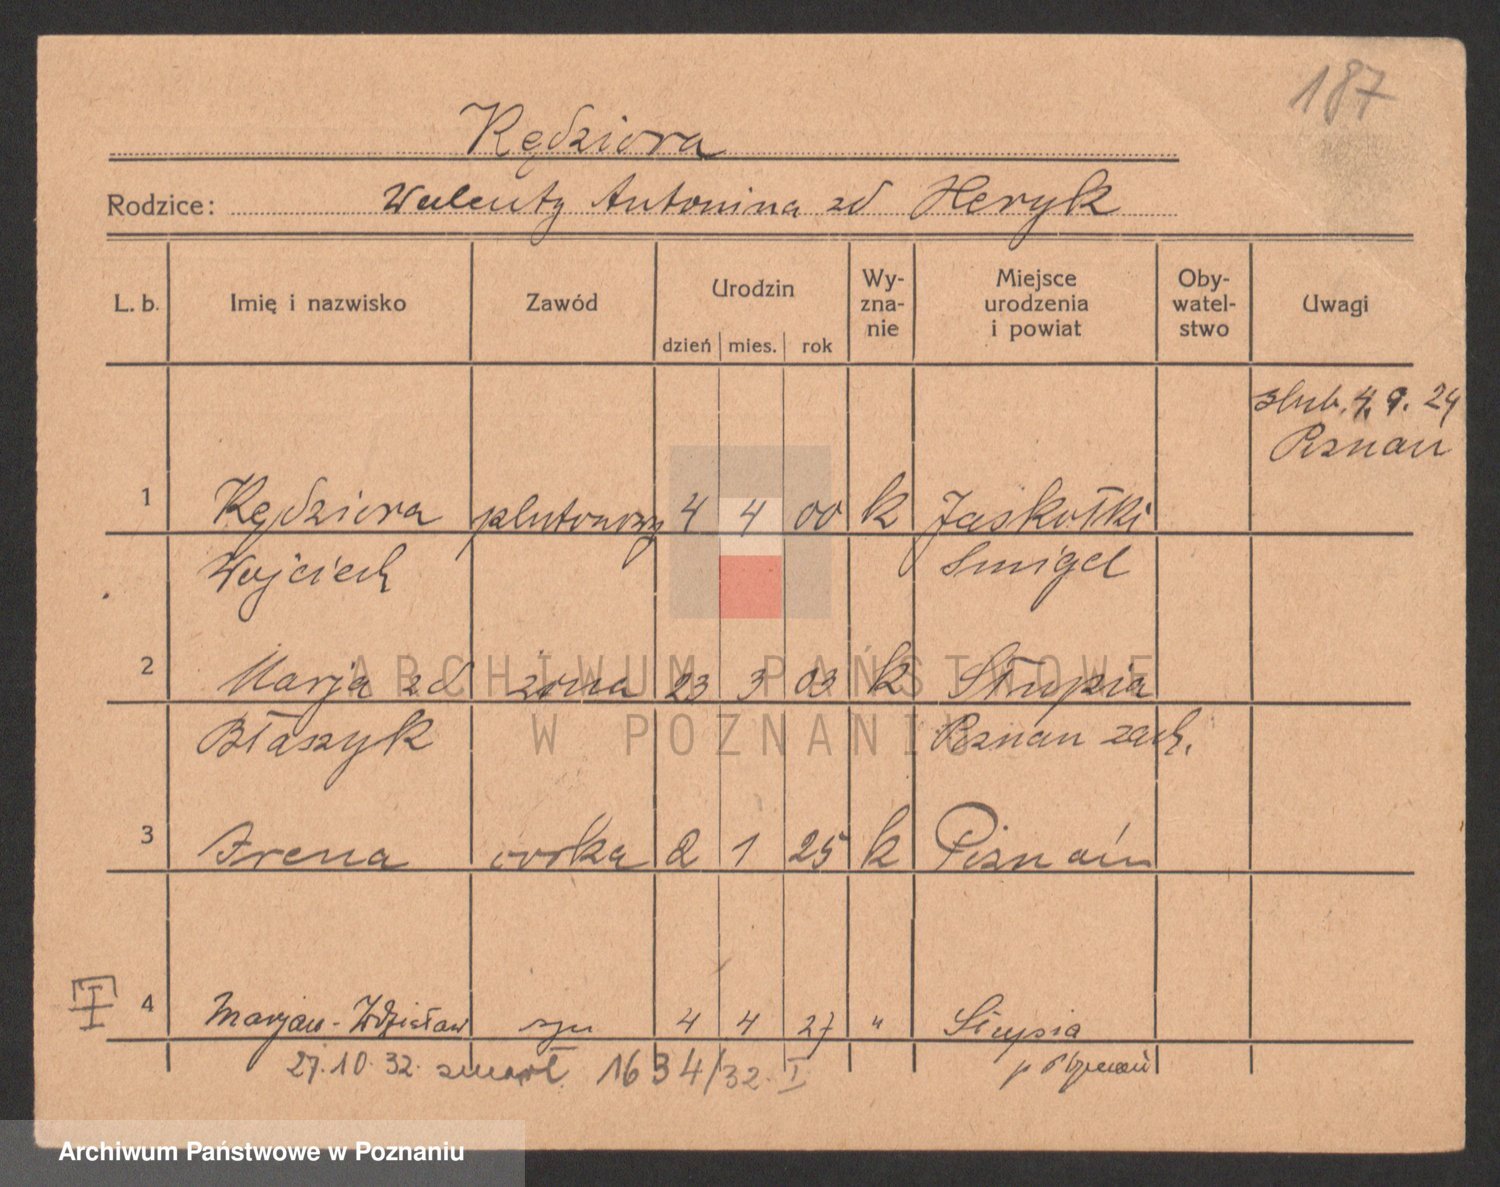 187
Kędziora
Rodzice: Walenty Antonina zd Heryk
L. b. Imię i nazwisko Zawód Urodzin dzień mies. rok Wy-zna-nie Miejsce urodzenia i powiat Oby-watel-stwo Uwagi
ślub. 4.9.24
Poznan
1 Kędziora plutonowy 4 4 00 k Jaskołki
Wojciech Smigel
2 Marja zd żona 23 3 03 k Słupia
Błaszyk Poznan zach.
3 Irena córka 2 1 25 k Poznań
4 Marjan-Zdzisław syn 4 4 27 " Słupia
27.10.32. zmarł. 1634/32. I p. Poznań
ARCHIWUM PAŃSTWOWE
W POZNANIU
Archiwum Państwowe w Poznaniu